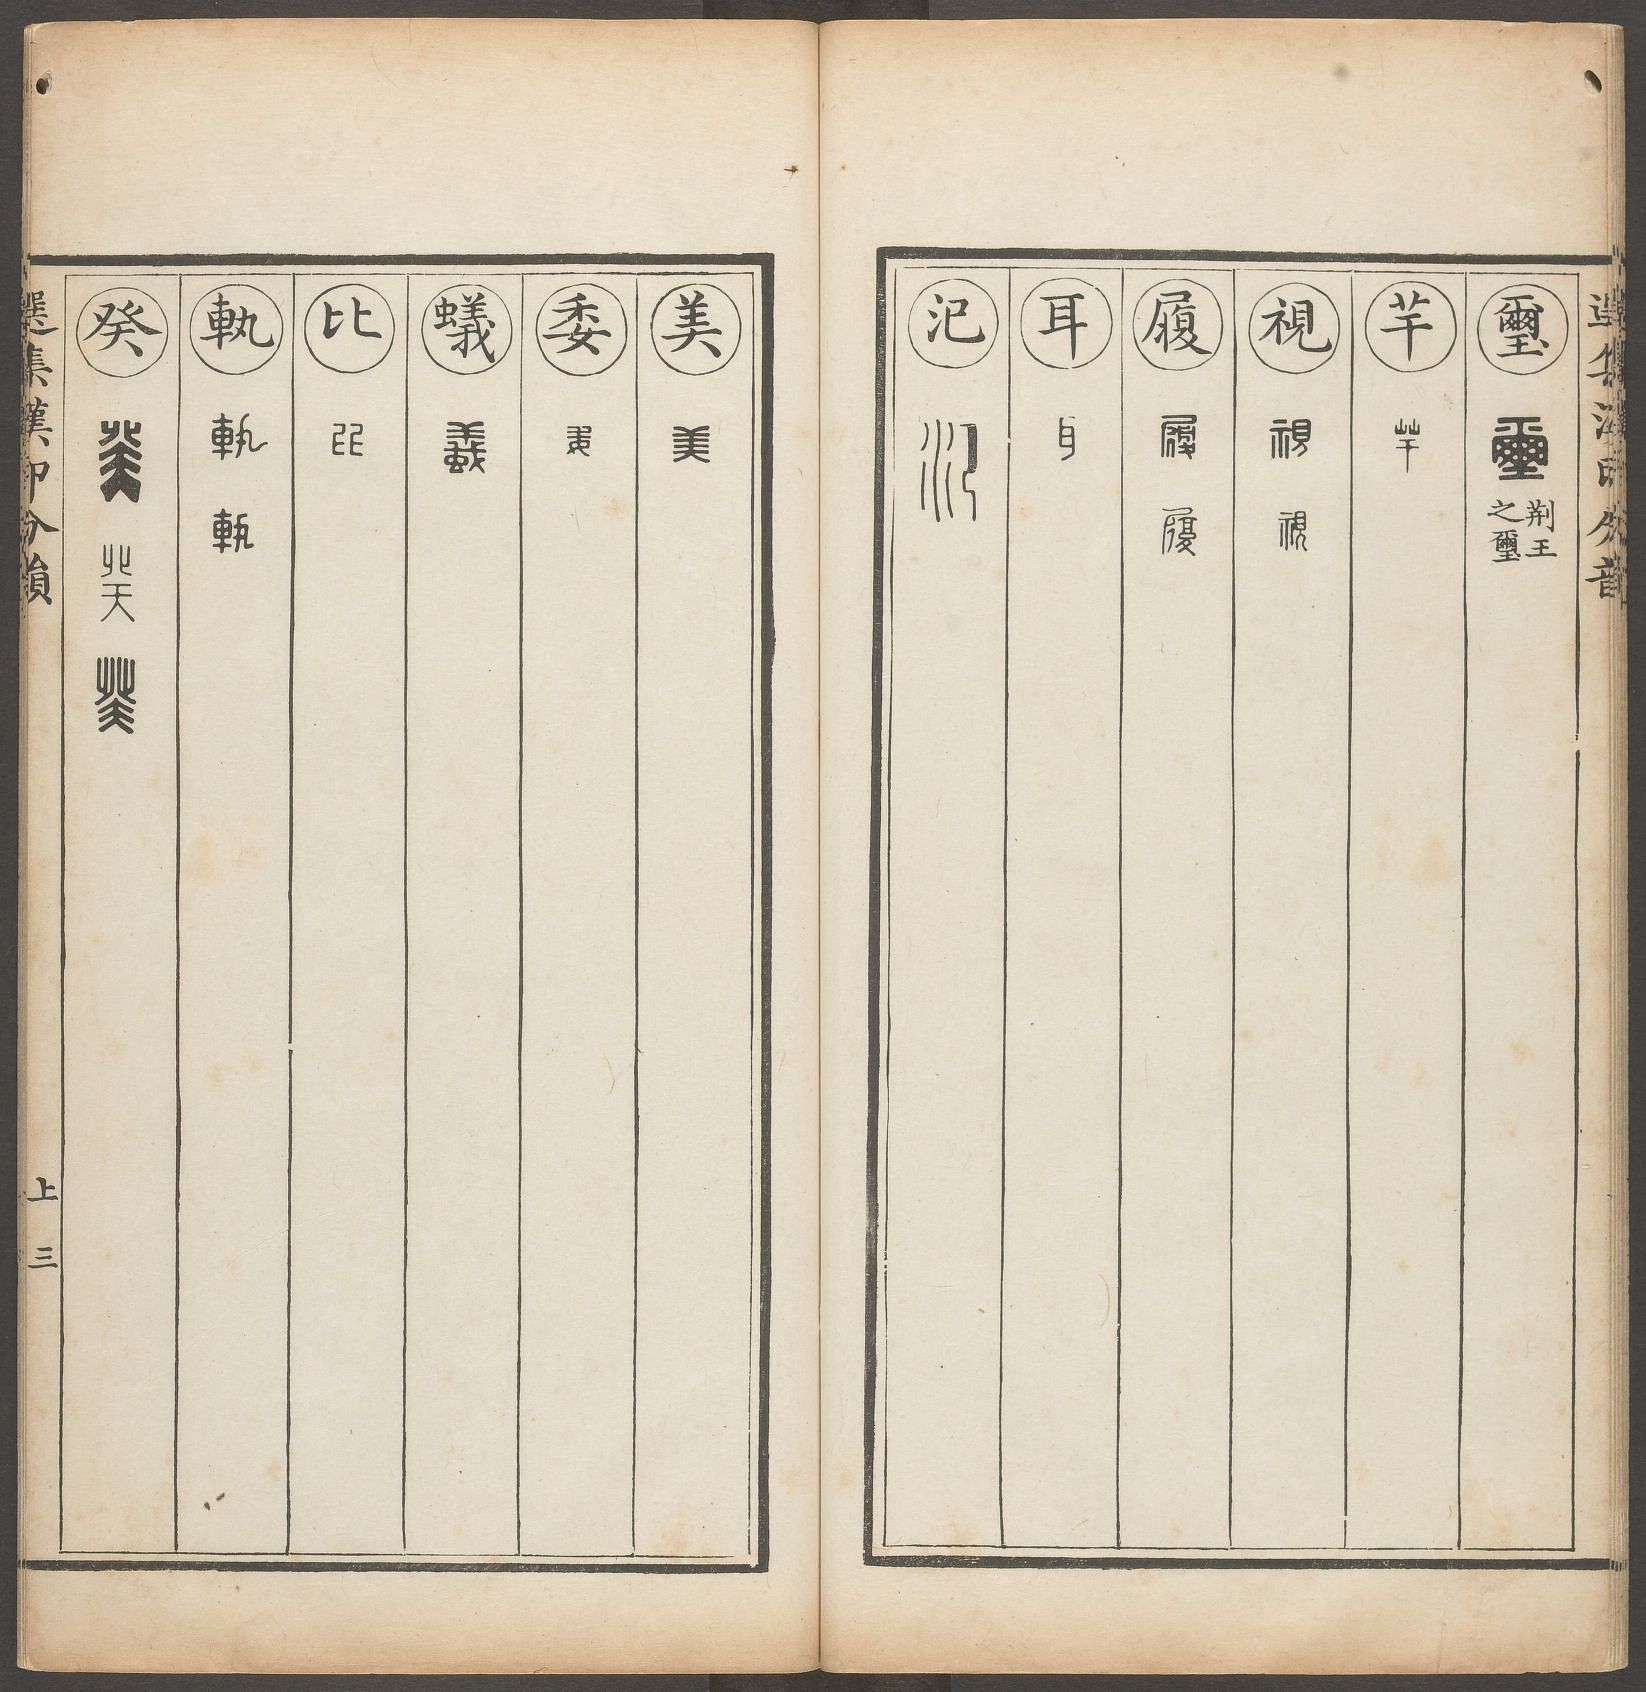 璽 璽 荆王之璽
芉 芉
視 視 視
履 履 履
耳 耳
汜 汜
美 美
委 委
蟻 蟻
比 比
軌 軌 軌
癸 癸 癸 癸
選集漢印分韻
上 三